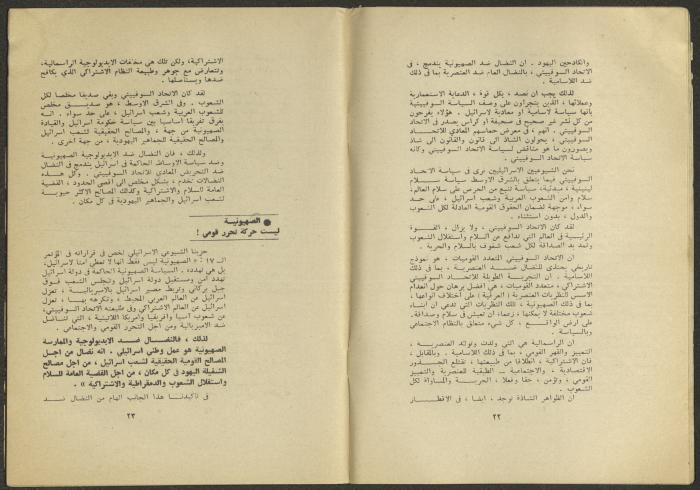 والكادحين اليهود . ان النضال ضد الصهيونية يندمج ، في
الاتحاد السوفييتي ، بالنضال العام ضد العنصرية بما في ذلك
ضد اللاسامية .
لذلك يجب ان نصد ، بكل قوة ، الدعاية الاستعمارية
وعملائها ، الذين يتجرأون على وصف السياسة السوفييتية
بأنها سياسة لاسامية او معادية لاسرائيل . هؤلاء يفرحون
من كل نشر غير صحيح في صحيفة او كراس يصدر في الاتحاد
السوفييتي . انهم ، في معرض حماسهم المعادي للاتحاد
السوفييتي ، يحولون الشاذ الى قانون والقانون الى شاذ
ويصورون ما هو مناقض لسياسة الاتحاد السوفييتي وكأنه
سياسة الاتحاد السوفييتي .
نحن الشيوعيين الاسرائيليين نرى في سياسة الاتحاد
السوفييتي فيما يتعلق بالشرق الاوسط سياسة سلام
لينينية ، مبدئية، سياسة تنبع من الحرص على سلام العالم،
سلام وامن الشعوب العربية وشعب اسرائيل ، على حد
سواء ، موجهة لضمان الحقوق القومية العادلة لكل الشعوب
والدول ، بدون استثناء .
لقد كان الاتحاد السوفييتي ، ولا يزال ، القوة
الرئيسية في العالم التي تدافع عن السلام واستقلال الشعوب
وتمد يد الصداقة لكل شعب شغوف بالسلام والحرية .
ان الاتحاد السوفييتي المتعدد القوميات ، هو نموذج
تاريخي يحتذى للنضال ضد العنصرية ، بما في ذلك
اللاسامية . ان التجربة الطويلة للاتحاد السوفييتي
الاشتراكي ، متعدد القوميات ، هي افضل برهان حول انعدام
الاسس للنظريات العنصرية ( العرقية ) على اختلاف الوانها ،
بما في ذلك الصهيونية ، تلك النظريات التي تدعي ان ابناء
شعوب مختلفة لا يمكنها ، زعما، ان تعيش في سلام وصداقة.
على ارض الواقع ، كل شيء متعلق بالنظام الاجتماعي
وبالسياسة .
ان الرأسمالية هي التي ولدت وتولد العنصرية ،
التمييز والقهر القومي ، بما في ذلك اللاسامية . وبالمقابل ،
فان الاشتراكية ، انطلاقا من طبيعتها ، تقتلع الجذور
الاقتصادية ، والاجتماعية — الطبقية للعنصرية والتمييز
القومي ، وتؤمن ، حقا وفعلا ، الحرية والمساواة لكل
الشعوب .
ان الظواهر الشاذة توجد ، ايضا ، في الاقطار
٢٢
الاشتراكية، ولكن تلك هي مخلفات الايديولوجية الرأسمالية،
وتتعارض مع جوهر وطبيعة النظام الاشتراكي الذي يكافح
ضدها ويستأصلها .
لقد كان الاتحاد السوفييتي وبقي صديقا مخلصا لكل
الشعوب . وفي الشرق الاوسط ، هو صديق مخلص
للشعوب العربية وشعب اسرائيل ، على حد سواء . انه
يفرق تفريقا اساسيا بين سياسة حكومة اسرائيل والقيادة
الصهيونية من جهة ، والمصالح الحقيقية لشعب اسرائيل
والمصالح الحقيقية للجماهير اليهودية ، من جهة اخرى .
ولذلك ، فان النضال ضد الايديولوجية الصهيونية
وضد سياسة الاوساط الحاكمة في اسرائيل يندمج في النضال
ضد التحريض المعادي للاتحاد السوفييتي . وكل هذه
النضالات تخدم ، بشكل مخلص الى اقصى الحدود ، القضية
العامة للسلام والاشتراكية وكذلك المصالح الاكثر حيوية
لشعب اسرائيل والجماهير اليهودية في كل مكان .
● الصهيونية
ليست حركة تحرر قومي !
حزبنا الشيوعي الاسرائيلي لخص في قراراته في المؤتمر
الـ ١٧ : « الصهيونية ليس فقط انها لا تعطي امنا لاسرائيل،
بل هي تهدده . السياسة الصهيونية الحاكمة في دولة اسرائيل
تهدد امن ومستقبل دولة اسرائيل وتجلس الشعب فوق
جبل بركاني وتربط مصير اسرائيل بالامبريالية ، تعزل
اسرائيل عن العالم العربي المحيط ، وتكرهه بها ، تعزل
اسرائيل عن العالم الاشتراكي وفي طليعته الاتحاد السوفييتي،
عن شعوب آسيا وافريقيا وامريكا اللاتينية ، التي تناضل
ضد الامبريالية ومن اجل التحرر القومي والاجتماعي .
لذلك ، فالنضال ضد الايديولوجية والممارسة
الصهيونية هو عمل وطني اسرائيلي ، انه نضال من اجل
المصالح القومية الحقيقية لشعب اسرائيل ، من اجل مصالح
الشغيلة اليهود في كل مكان ، من اجل القضية العامة للسلام
واستقلال الشعوب والدمقراطية والاشتراكية » .
في تأكيدنا هذا الجانب الهام من النضال ضد
٢٣